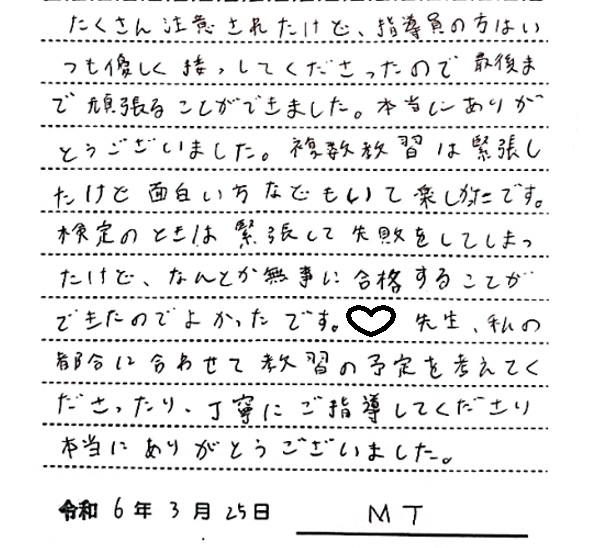 たくさん注意されたけど、指導員の方はい
つも優しく接っしてくださったので最後ま
で頑張ることができました。本当にありが
とうございました。複数教習は緊張し
たけど面白い方などもいて楽しかたです。
検定のときは緊張して失敗をしてしまっ
たけど、なんとか無事に合格することが
できたのでよかったです。♡先生、私の
都合に合わせて教習の予定を考えてく
ださったり、丁寧にご指導してくださり
本当にありがとうございました。
令和6年3月25日 MT